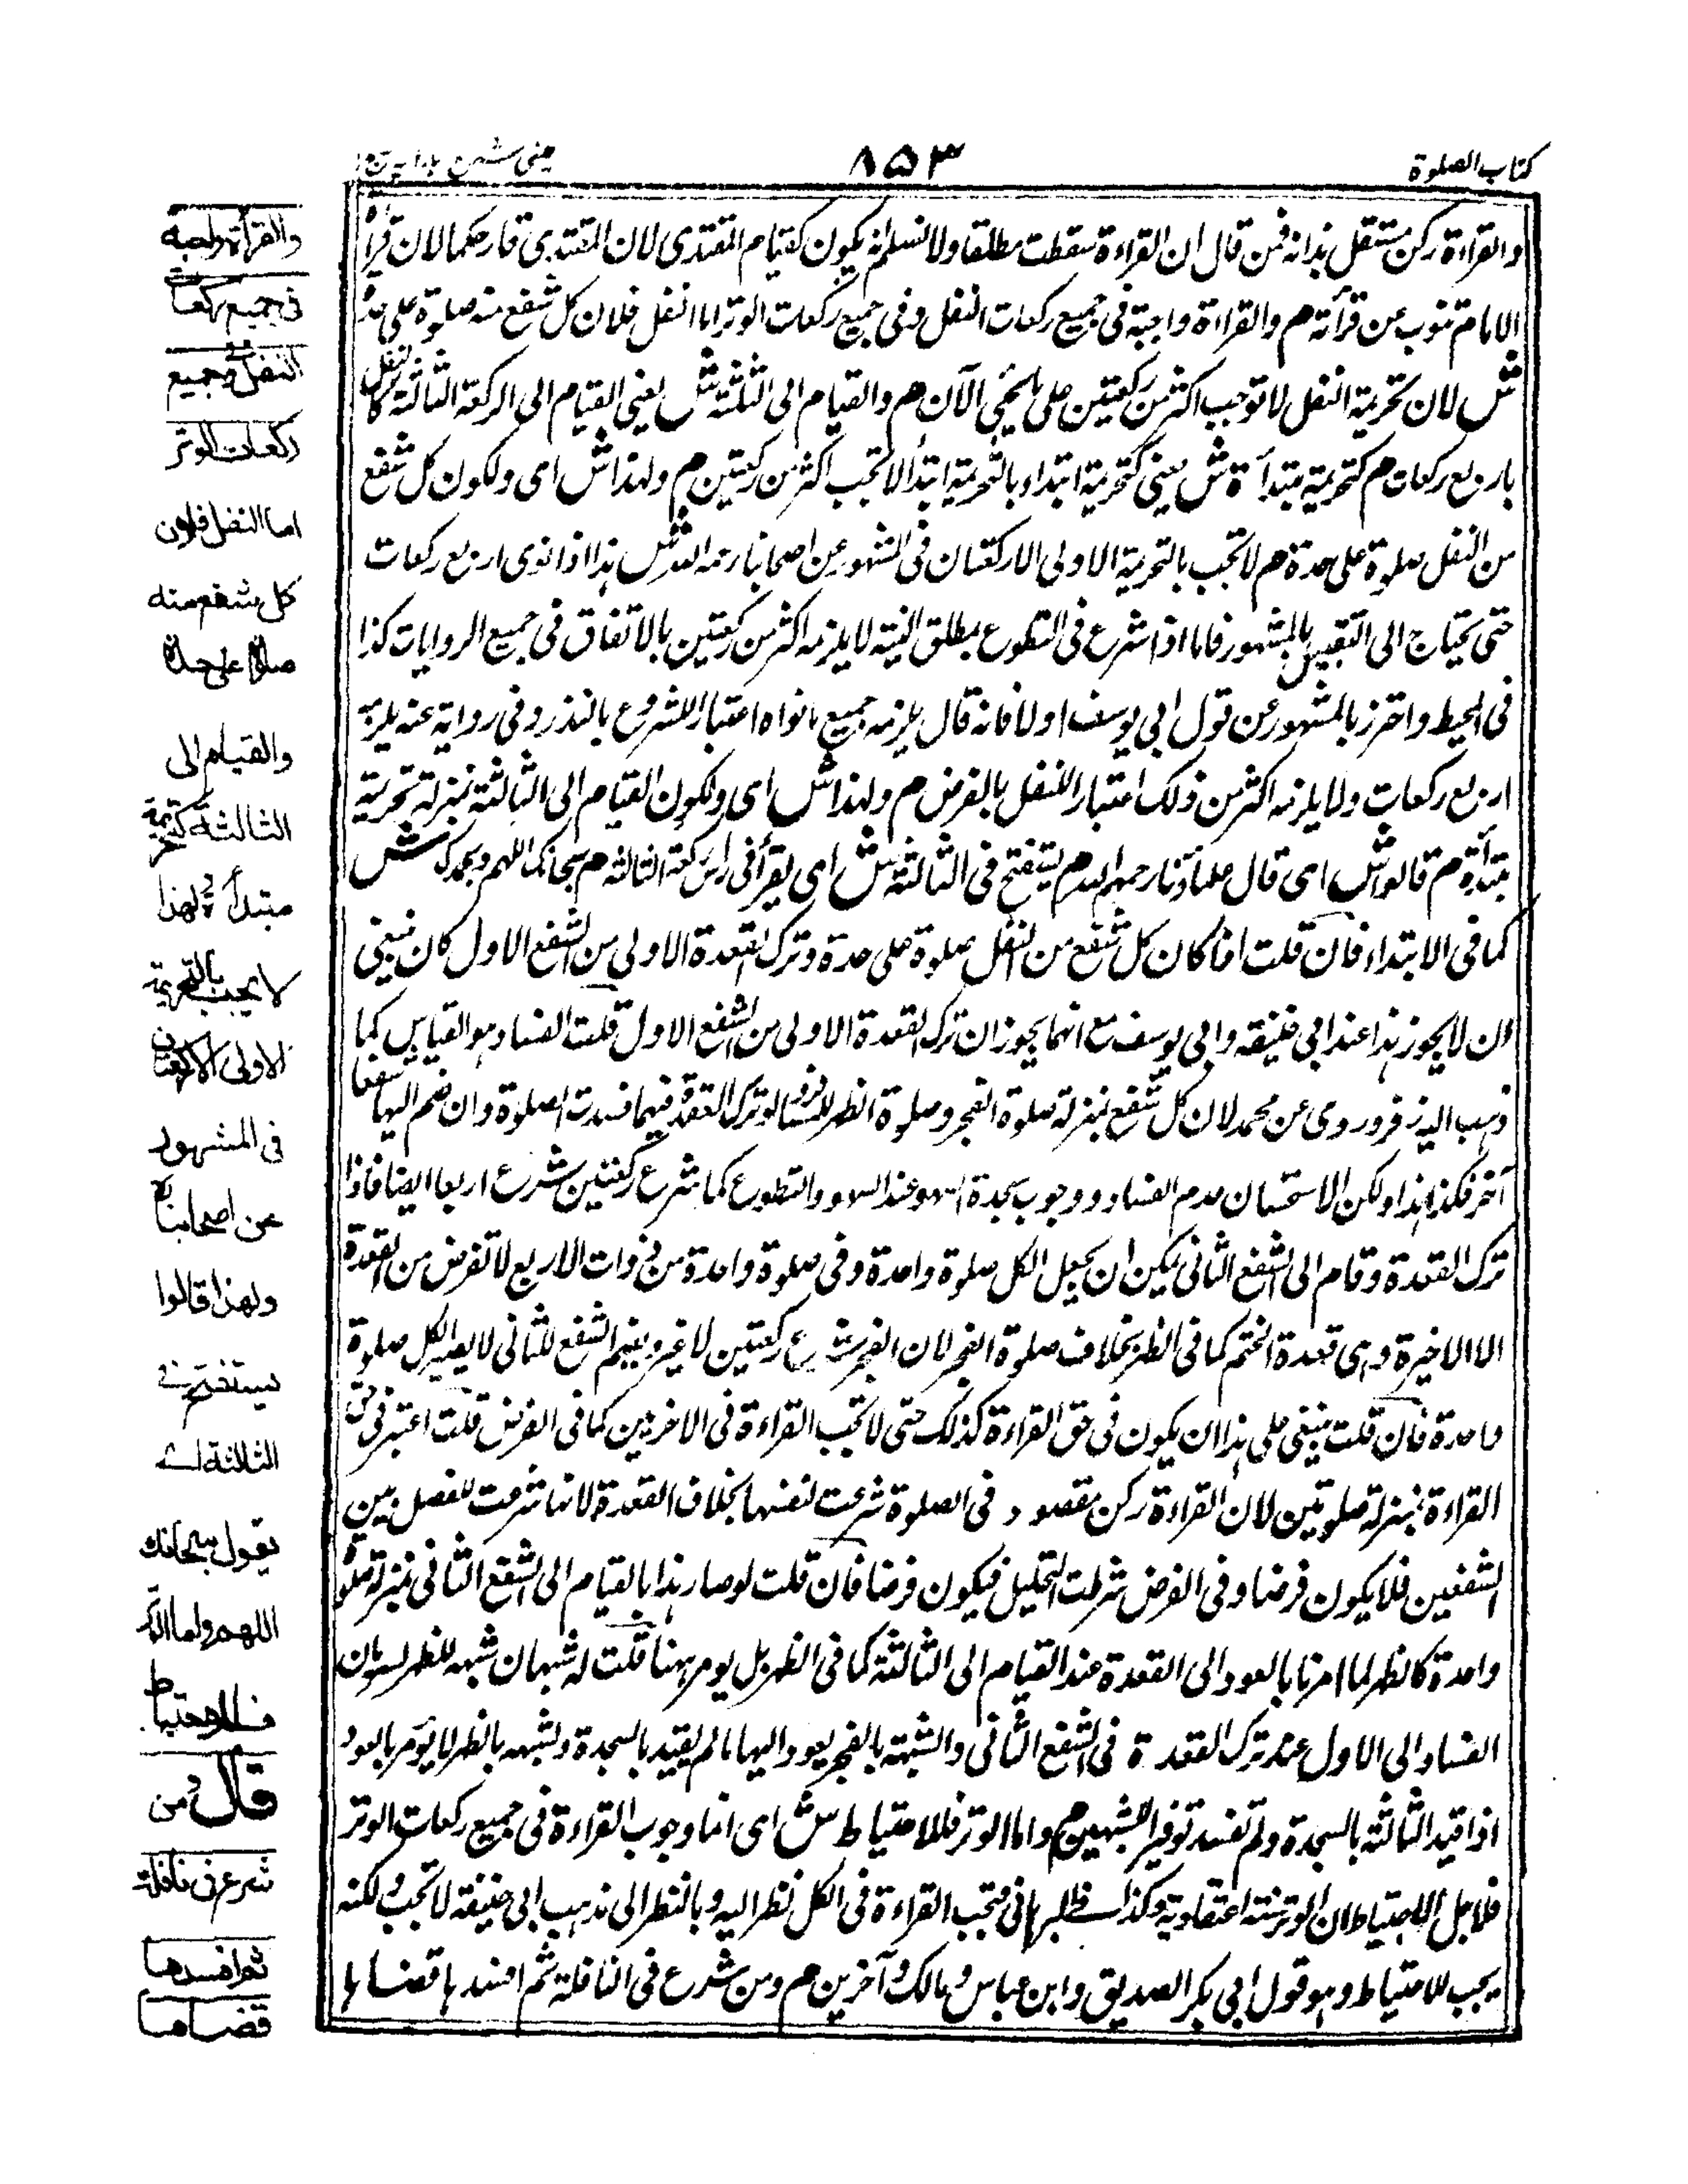 كتاب الصلوة
٨٥٣
عيني شرح هداية
والقراءة ركن مستقل بذاته فمن قال ان القراءة سقطت مطلقا ولا نسلم انه يكون كقيام المقتدى لان المقتدى قار حكما لان قراءة
الامام تنوب عن قرأته م والقراءة واجبة فى جميع ركعات النفل وفى جميع ركعات الوتر اما النفل فلان كل شفع منه صلوة على حدة
ش لان تحريمة النفل لا توجب اكثر من ركعتين على ما يجئ الآن م والقيام الى الثالثة ش يعنى القيام الى الركعة الثالثة كالنفل
باربع ركعات م كتحريمة مبتدأة ش يعنى كتحريمة ابتداء بالتحريمة ابتدأ لا تجب اكثر من ركعتين م ولهذا ش اى ولكون كل شفع
من النفل صلوة على حدة م لا تجب بالتحريمة الاولى الا ركعتان فى المشهور عن اصحابنا رحمه الله ش هذا اذا نوى اربع ركعات
حتى يحتاج الى التقييد بالمشهور فاما اذا شرع فى التطوع بمطلق النية لا يلزمه اكثر من ركعتين بالاتفاق فى جميع الروايات كذا
فى المحيط واحترز بالمشهور عن قول ابى يوسف اولا فانه قال يلزمه جميع ما نواه اعتبارا للشروع بالنذر وفى رواية عنه يلزمه
اربع ركعات ولا يلزمه اكثر من ذلك اعتبارا للنفل بالفرض م ولهذا ش اى ولكون القيام الى الثالثة بمنزلة تحريمة
مبتدأة م قالوا ش اى قال علماؤنا رحمهم الله م يستفتح فى الثالثة ش اى يقرأ فى راس ركعة الثالثة م سبحانك اللهم وبحمدك ش
كما فى الابتداء فان قلت اذا كان كل شفع من النفل صلوة على حدة وترك القعدة الاولى من الشفع الاول كان ينبغى
ان لا يجوز هذا عند ابى حنيفة وابى يوسف مع انهما يجوزان ترك القعدة الاولى من الشفع الاول قلت الفساد هو القياس كما
ذهب اليه زفر وروى عن محمد لان كل شفع بمنزلة صلوة الفجر وصلوة الظهر للمسافر ولو ترك القعدة فيهما فسدت الصلوة وان ضم اليها شفعا
آخر فكذا هذا ولكن الاستحسان عدم الفساد ووجوب سجدة السهو عند السهو والتطوع كما شرع ركعتين شرع اربعا ايضا فاذا
ترك القعدة وقام الى الشفع الثانى يمكن ان يجعل الكل صلوة واحدة وفى صلوة واحدة من ذوات الاربع لا تفرض من القعدة
الا الاخيرة وهى قعدة الختم كما فى الظهر بخلاف صلوة الفجر لان الفجر شرع ركعتين لا غير وبضم الشفع الثانى لا يصير الكل صلوة
واحدة فان قلت ينبغى على هذا ان يكون فى حق القراءة كذلك حتى لا تجب القراءة فى الاخريين كما فى الفرض قلت اعتبر فى حق
القراءة بمنزلة صلوتين لان القراءة ركن مقصود فى الصلوة شرعت لنفسها بخلاف القعدة لانها شرعت للفصل بين
الشفعين فلا يكون فرضا وفى الفرض شرطت التحليل فيكون فرضا فان قلت لو صار هذا بالقيام الى الشفع الثانى بمنزلة صلوة
واحدة كالظهر لما امرنا بالعود الى القعدة عند القيام الى الثالثة كما فى الظهر بل يومر ههنا قلت له شبهان شبه للظهر
الفساد الى الاول عند ترك القعدة فى الشفع الثانى والشبهة بالفجر يعود اليها ما لم يقيد بالسجدة ولشبهه بالظهر لا يؤمر بالعود
اذا قيد الثالثة بالسجدة ولم تفسد توفيرا للشبهين م واما الوتر فللاحتياط ش اى اما وجوب القراءة فى جميع ركعات الوتر
فلاجل الاحتياط ان الوتر سنة اعتقادية وكذا فتجب القراءة فى الكل نظرا اليه وبالنظر الى مذهب ابى حنيفة لا تجب ولكنه
يجب للاحتياط وهو قول ابى بكر الصديق وابن عباس ومالك وآخرين م ومن شرع فى النافلة ثم افسدها قضاها
والقرأة واجبة
فى جميع ركعات
النفل وجميع
ركعات الوتر
اما النفل فلان
كل شفع منه
صلوة على حدة
والقيام الى
الثالثة كتحريمة
مبتدأة ولهذا
لا يجب بالتحريمة
الاولى الا ركعتان
فى المشهور
عن اصحابنا
ولهذا قالوا
يستفتح فى
الثالثة اے
يقول سبحانك
اللهم واما الوتر
فللاحتياط
قال ومن
شرع فى نافلة
ثم افسدها
قضاها